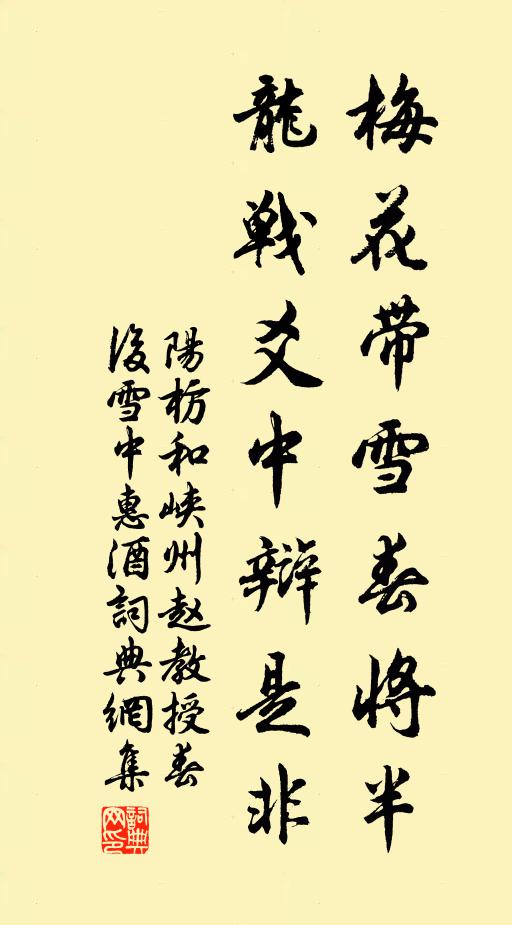 梅花带雪春将半
龍戦爻中辩是非
陽枋和峡州赵教授春
後雪中惠酒詞典網集
詞典網印